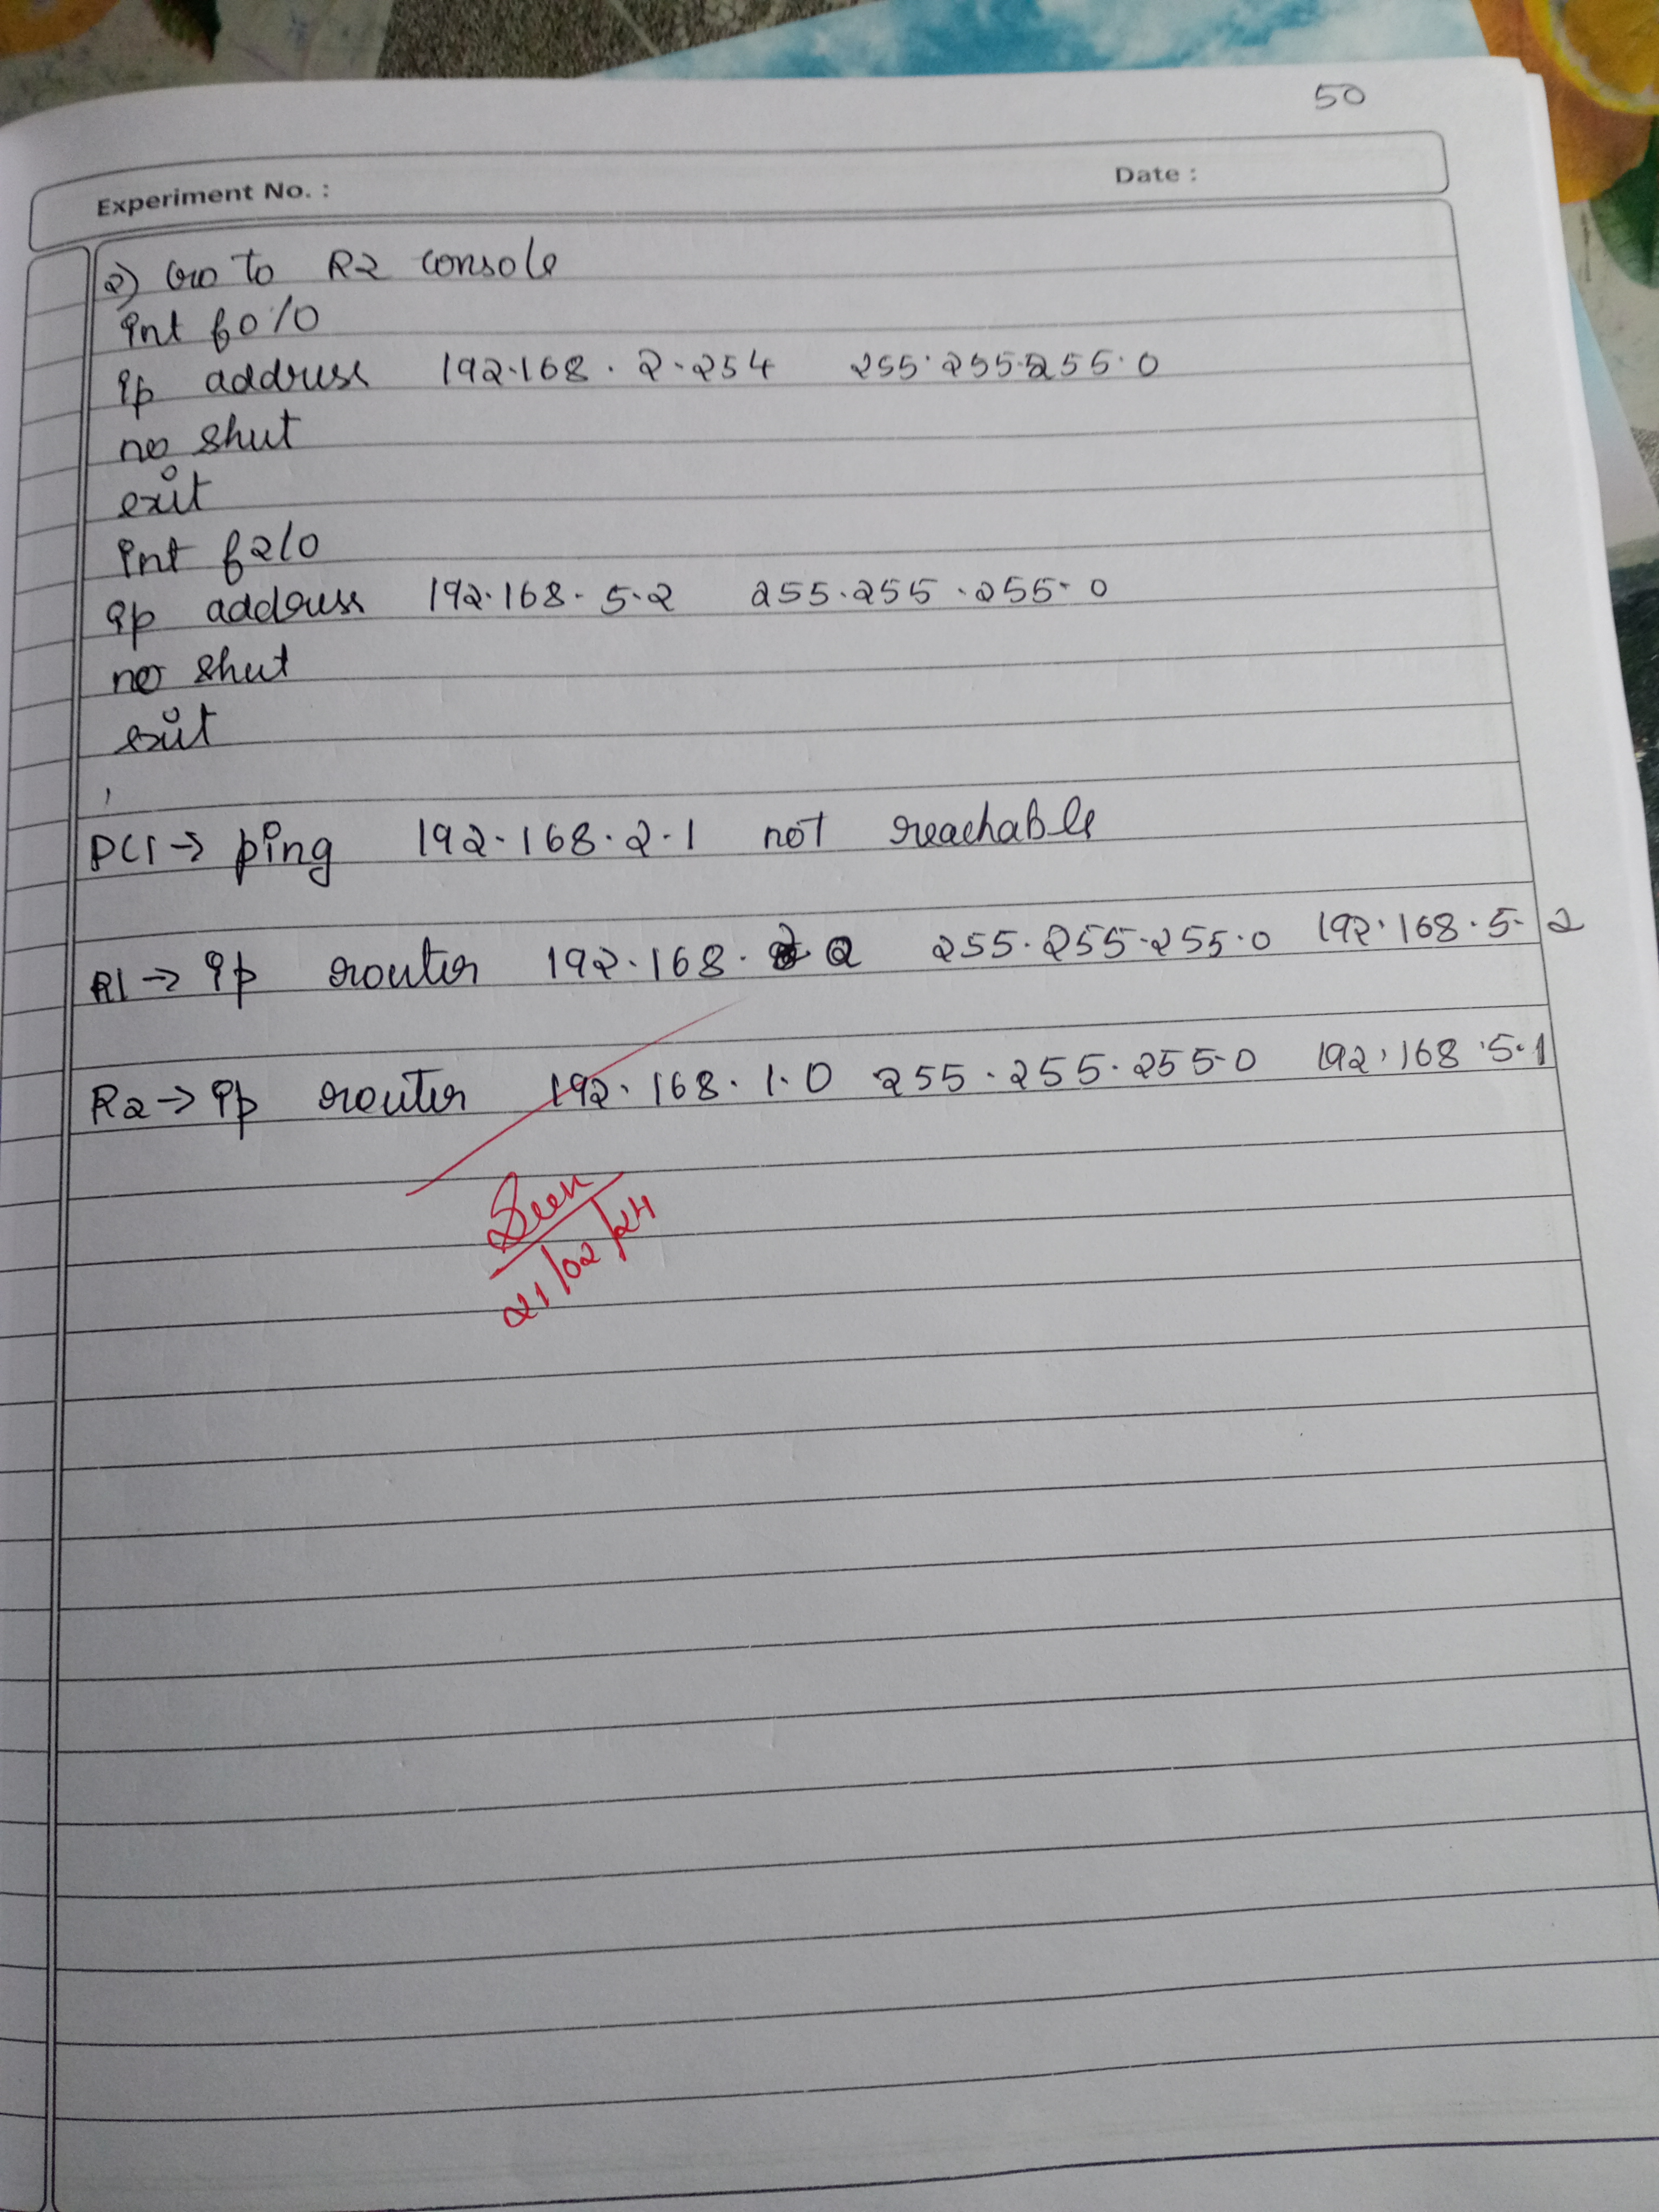 50
Experiment No. :
Date :
2) Go to R2 console
int f0/0
ip address 192.168.2.254 255.255.255.0
no shut
exit
int f2/0
ip address 192.168.5.2 255.255.255.0
no shut
exit
PC1→ ping 192.168.2.1 not reachable
R1→ ip router 192.168. 2 255.255.255.0 192.168.5.2
R2→ ip router 192.168.1.0 255.255.255.0 192.168.5.1
Seen
21/02/24